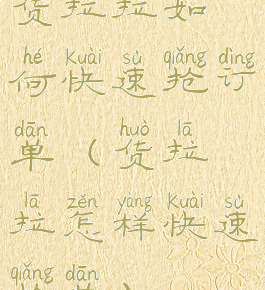 货拉拉如
hé kuài sù qiǎng dìng
何快速抢订
dān huò lā
单（货拉
lā zěn yàng kuài sù
拉怎样快速
qiǎng dān